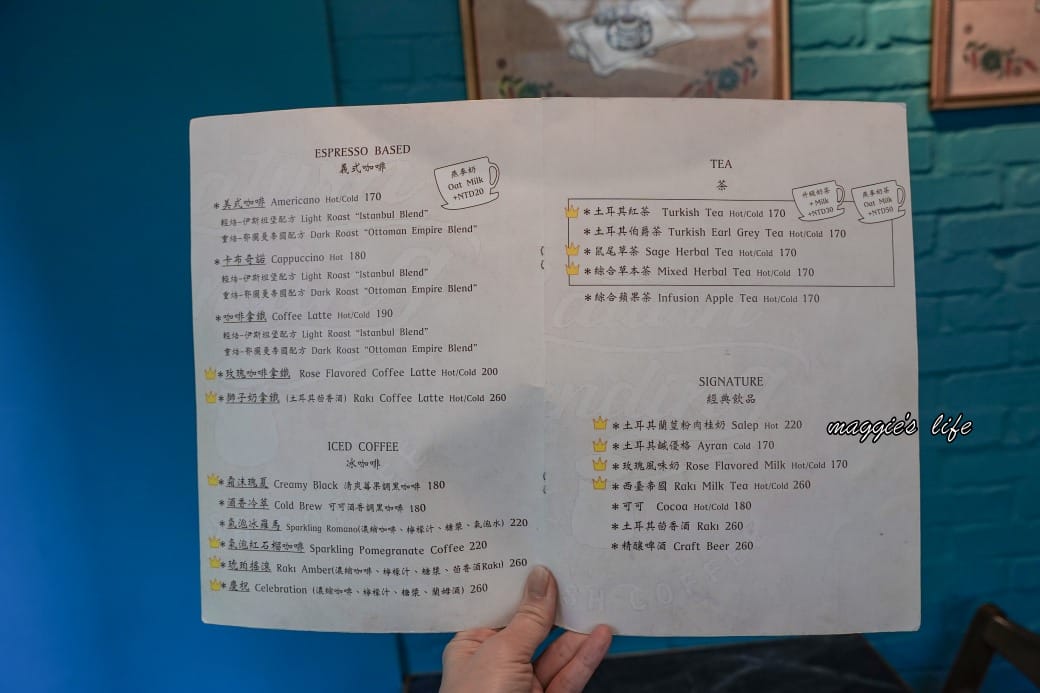 ESPRESSO BASED
義式咖啡
燕麥奶
Oat Milk
+NTD20
*美式咖啡 Americano Hot/Cold 170
輕焙-伊斯坦堡配方 Light Roast "Istanbul Blend"
重焙-鄂圖曼帝國配方 Dark Roast "Ottoman Empire Blend"
*卡布奇諾 Cappuccino Hot 180
輕焙-伊斯坦堡配方 Light Roast "Istanbul Blend"
重焙-鄂圖曼帝國配方 Dark Roast "Ottoman Empire Blend"
*咖啡拿鐵 Coffee Latte Hot/Cold 190
輕焙-伊斯坦堡配方 Light Roast "Istanbul Blend"
重焙-鄂圖曼帝國配方 Dark Roast "Ottoman Empire Blend"
*玫瑰咖啡拿鐵 Rose Flavored Coffee Latte Hot/Cold 200
*獅子奶拿鐵 (土耳其茴香酒) Rakı Coffee Latte Hot/Cold 260
ICED COFFEE
冰咖啡
*霜沫瑰夏 Creamy Black 清爽莓果調黑咖啡 180
*酒香冷萃 Cold Brew 可可酒香調黑咖啡 180
*氣泡冰羅馬 Sparkling Romano(濃縮咖啡、檸檬汁、糖漿、氣泡水) 220
*氣泡紅石榴咖啡 Sparkling Pomegranate Coffee 220
*琥珀搖滾 Rakı Amber(濃縮咖啡、檸檬汁、糖漿、茴香酒Rakı) 260
*慶祝 Celebration (濃縮咖啡、檸檬汁、糖漿、蘭姆酒) 260
TEA
茶
升級奶茶
+Milk
+NTD30
燕麥奶茶
Oat Milk
+NTD50
*土耳其紅茶 Turkish Tea Hot/Cold 170
*土耳其伯爵茶 Turkish Earl Grey Tea Hot/Cold 170
*鼠尾草茶 Sage Herbal Tea Hot/Cold 170
*綜合草本茶 Mixed Herbal Tea Hot/Cold 170
*綜合蘋果茶 Infusion Apple Tea Hot/Cold 170
SIGNATURE
經典飲品
*土耳其蘭莖粉肉桂奶 Salep Hot 220
*土耳其鹹優格 Ayran Cold 170
*玫瑰風味奶 Rose Flavored Milk Hot/Cold 170
*西臺帝國 Rakı Milk Tea Hot/Cold 260
*可可 Cocoa Hot/Cold 180
*土耳其茴香酒 Rakı 260
*精釀啤酒 Craft Beer 260
maggie's life